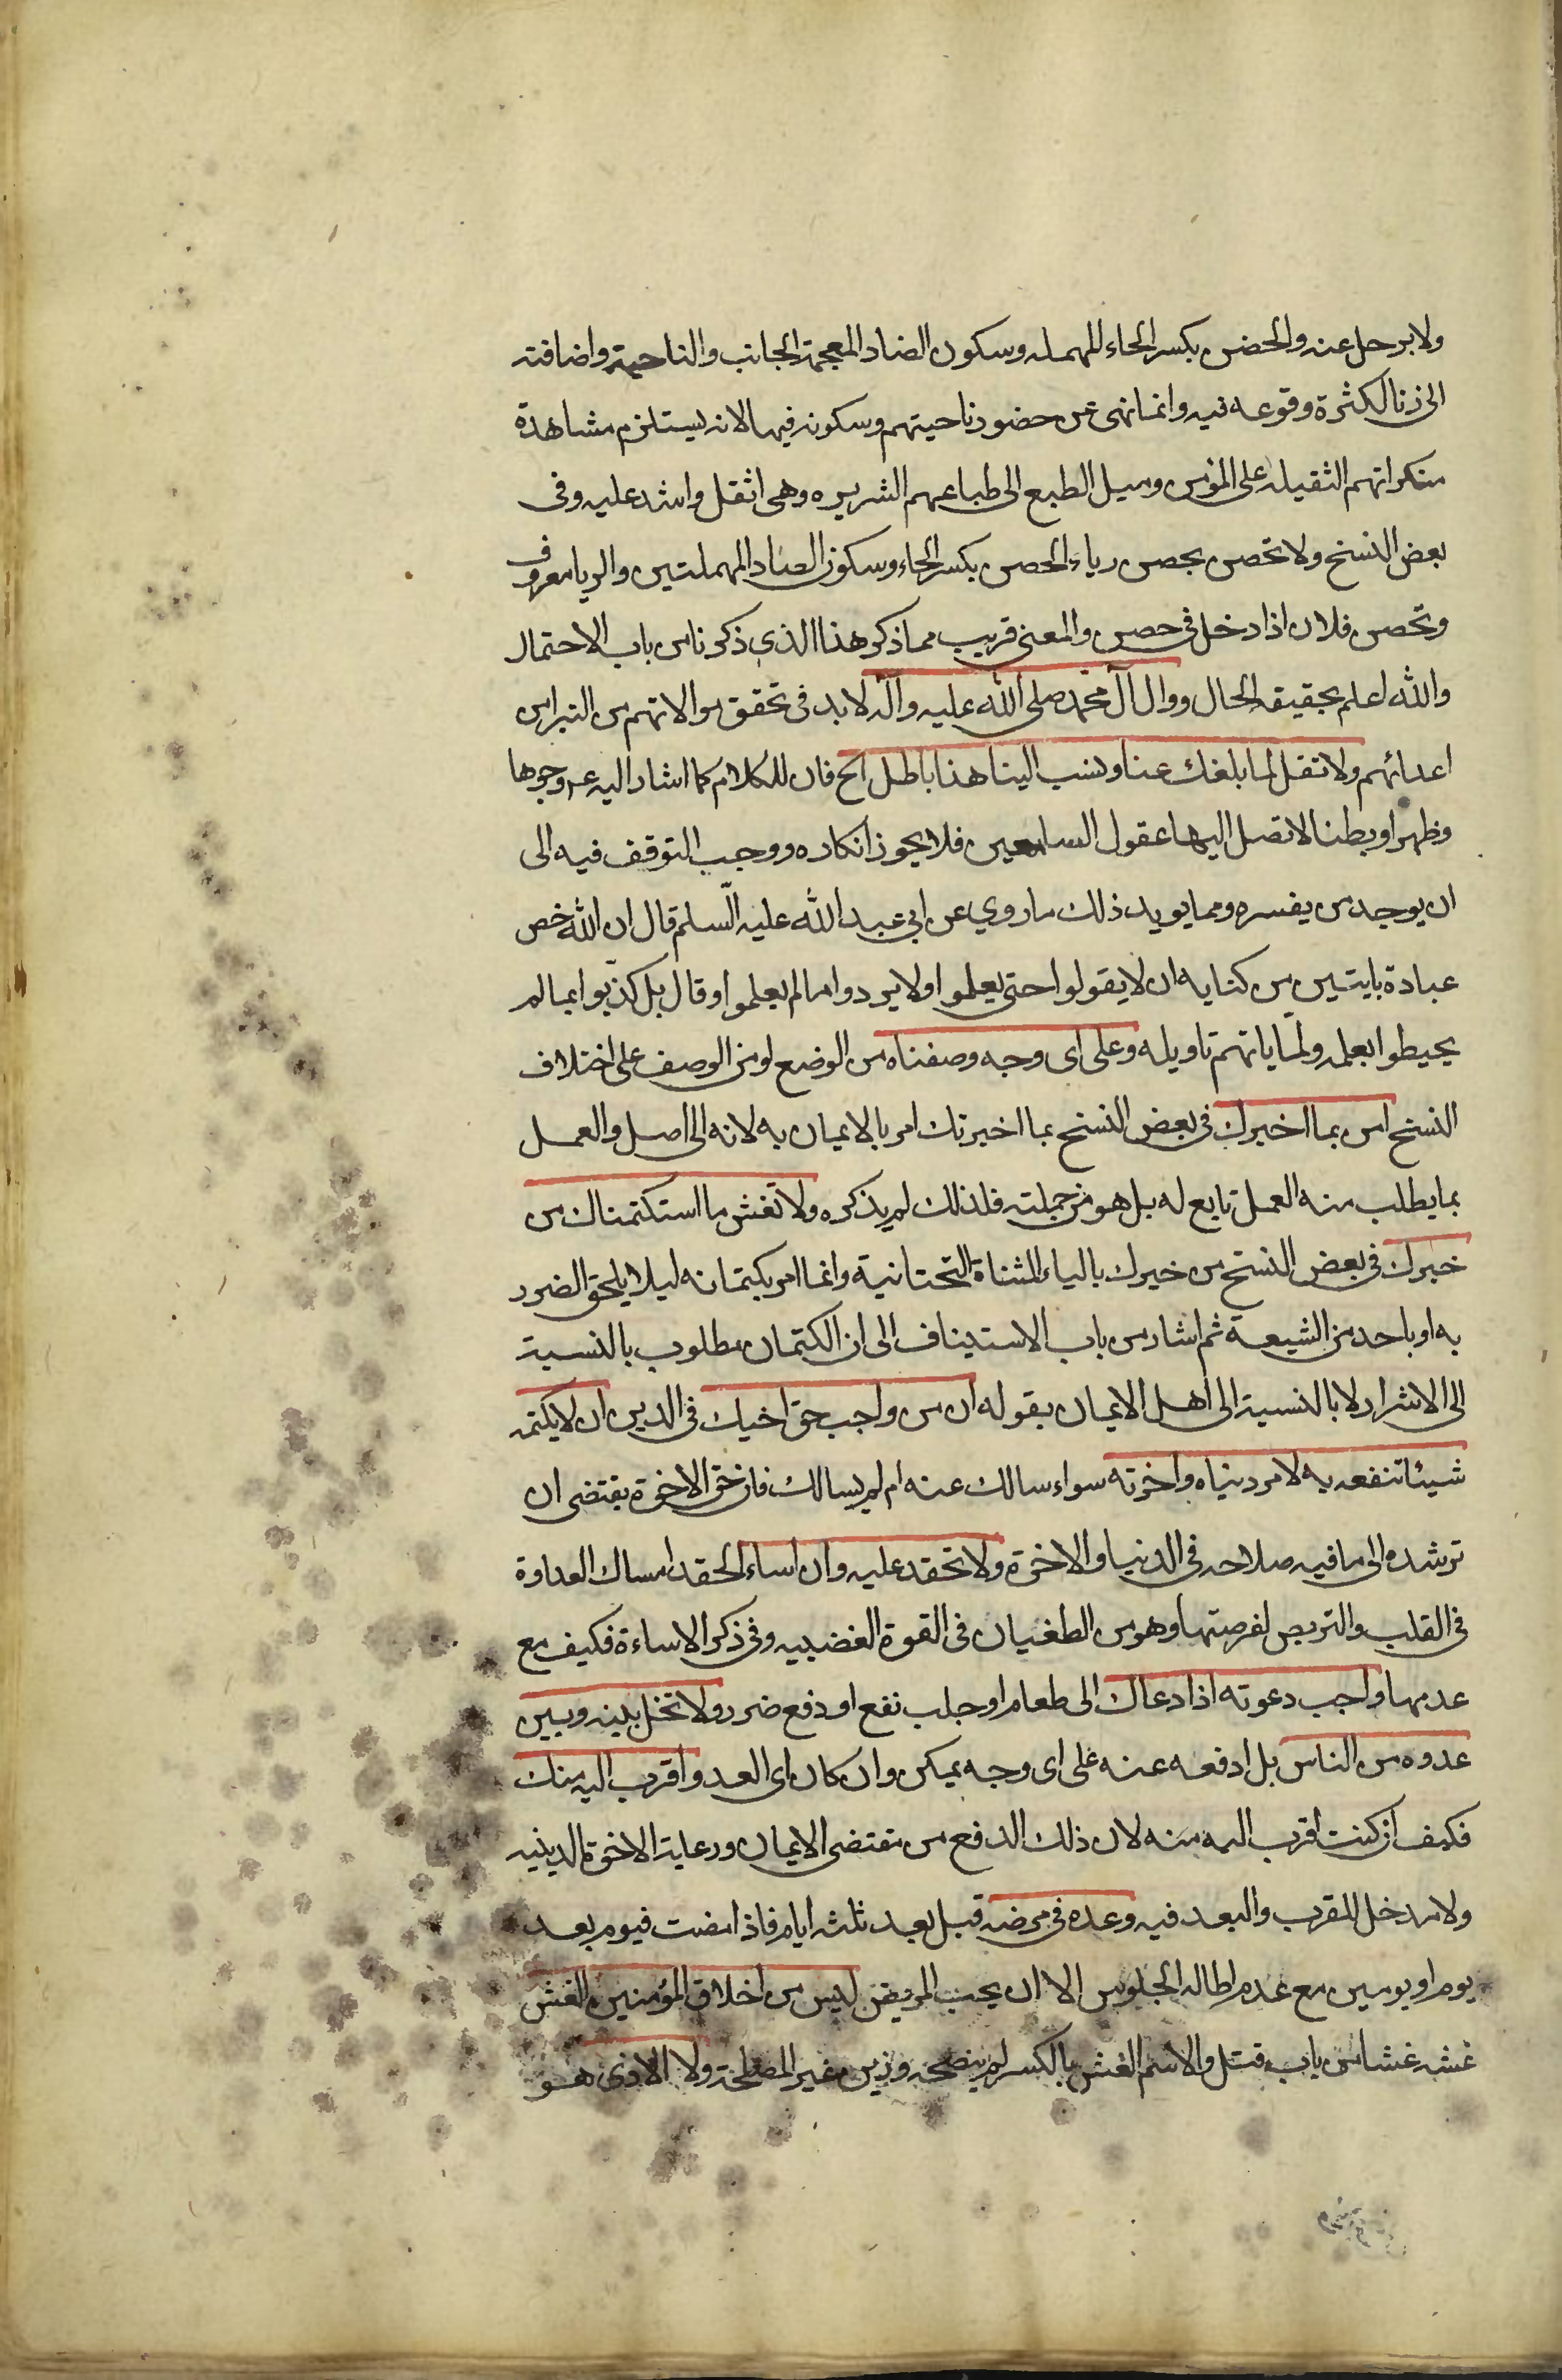 ولا يرحل عنه والحضن بكسر الحاء المهمله وسكون الضاد المعجمة الجانب والناحية واضافته
الى زنا لكثرة وقوعه فيه وانما نهى عن حضور ناحيتهم وسكونه فيها لانه يستلزم مشاهدة
منكراتهم الثقيله على المؤمن وميل الطبع الى طباعهم الشريره وهى اثقل واشد عليه وفى
بعض النسخ ولا تحصن بحصن رياء الحصن بكسر الحاء وسكون الصاد المهملتين والريا معروف
وتحصن فلان اذا دخل فى حصن والمعنى قريب مما ذكر هذا الذي ذكرنا من باب الاحتمال
والله اعلم بحقيقة الحال ووال آل محمد صلى الله عليه وآله لا بد فى تحقق موالاتهم من التبرا من
اعدائهم ولا تقل لما بلغك عنا ونسب الينا هذا باطل الخ فان للكلام كما اشار اليه عم وجوها
وظهرا وبطنا لا تصل اليها عقول السامعين فلا يجوز انكاره ووجب التوقف فيه الى
ان يوجد من يفسره ومما يويد ذلك ما روي عن ابي عبد الله عليه السلم قال ان الله خص
عباده بايتين من كتابه ان لا يقولوا حتى يعلموا ولا يردوا ما لم يعلموا وقال بل كذبوا بما لم
يحيطوا بعلمه ولما ياتهم تاويله وعلى اى وجه وصفناه من الوضع او من الوصف على اختلاف
النسخ امن بما اخبرك فى بعض النسخ بما اخبرتك امر بالايمان به لانه الاصل والعمل
بما يطلب منه العمل تابع له بل هو من جملته فلذلك لم يذكره ولا تفش ما استكتمناك من
خبرك فى بعض النسخ من خيرك بالياء المثناة التحتانية وانما امر بكتمانه ليلا يلحق الضرر
به او باحد من الشيعة ثم اشار من باب الاستيناف الى ان الكتمان مطلوب بالنسبة
الى الاشرار لا بالنسبة الى اهل الايمان بقوله ان من واجب حق اخيك فى الدين ان لا يكتمه
شيئا تنفعه به لامر دنياه واخرته سواء سالك عنه ام لم يسالك فان حق الاخوة يقتضى ان
ترشده الى ما فيه صلاحه فى الدنيا والاخرة ولا تحقد عليه وان اساء الحقد امساك العداوة
فى القلب والتربص لفرصتها وهو من الطغيان فى القوة الغضبيه وفى ذكر الاساءة فكيف مع
عدمها واجب دعوته اذا دعاك الى طعام او جلب نفع او دفع ضرر ولا تخل بينه وبين
عدوه من الناس بل ادفعه عنه على اى وجه يمكن وان كان اى العدو اقرب اليه منك
فكيف ان كنت اقرب اليه منه لان ذلك الدفع من مقتضى الايمان ورعاية الاخوة الدينيه
ولا مدخل للقرب والبعد فيه وعده فى مرضه قيل بعد ثلثه ايام فاذا مضت فيوم بعد
يوم او يومين مع عدم اطاله الجلوس الا ان يحب المريض ليس من اخلاق المؤمنين الغش
غشه غشا من باب قتل والاسم الغش بالكسر لم ينصحه وزين غير المصلحة ولا الاذى هو